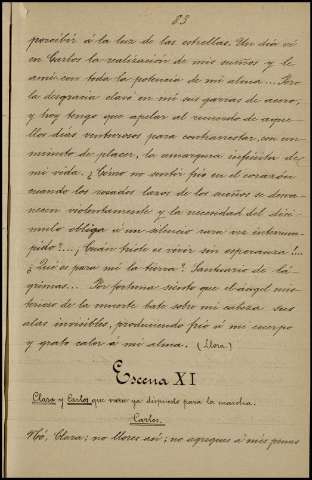 83
percibir á la luz de las estrellas. Un dia vi
en Carlos la realización de mis sueños y le
amé con toda la potencia de mi alma... Pero
la desgracia clavó en mí sus garras de acero,
y hoy tengo que apelar al recuerdo de aque-
llos dias venturosos para contrarrestar, con un
minuto de placer, la amargura infinita de
mi vida. ¿Cómo no sentir frio en el corazón
cuando los rosados lazos de los sueños se desva-
necen violentamente y la necesidad del disi-
mulo obliga á un silencio rara vez interrum-
pido?... ¡Cuán triste es vivir sin esperanza!...
¿Qué es para mí la tierra? Santuario de lá-
grimas... Por fortuna siento que el ángel mis-
terioso de la muerte bate sobre mi cabeza sus
alas invisibles, produciendo frio á mi cuerpo
y grato calor á mi alma. (Llora.)
Escena XI
Clara y Carlos que viene ya dispuesto para la marcha.
Carlos.
Nó, Clara; no llores así; no agregues á mis penas